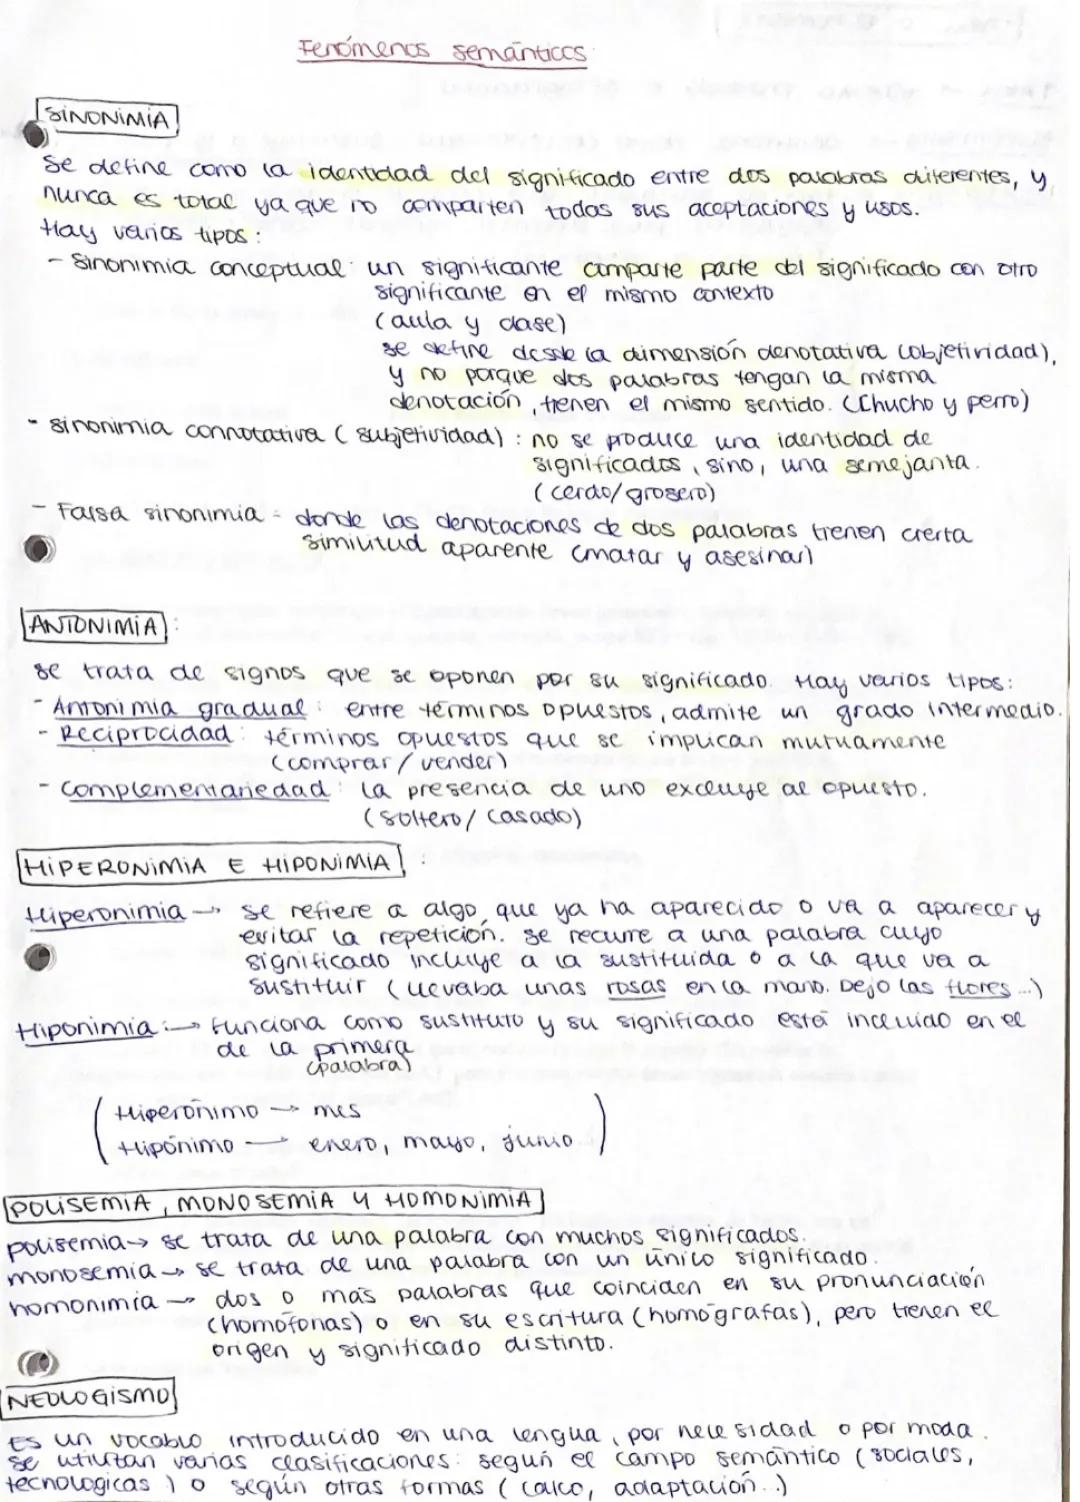 Fenómenos semánticos
SINONIMIA
se define como la identidad del significado entre dos palabras diferentes, y
nunca es total ya que no comparten todas sus aceptaciones y usos.
Hay varios tipos:
- Sinonimia conceptual: un significante comparte parte del significado con otro
significante en el mismo contexto
(aula y clase)
se define desde la dimensión denotativa (objetividad),
y no porque dos palabras tengan la misma
denotación, tienen el mismo sentido. (Chucho y perro)
- sinonimia connotativa (subjetividad): no se produce una identidad de
significados, sino, una semejanta.
(cerdo/grosero)
- Falsa sinonimia - donde las denotaciones de dos palabras tienen cierta
similitud aparente (matar y asesinar)
ANTONIMIA:
se trata de signos que se oponen por su significado. Hay varios tipos:
- Antonimia gradual: entre términos opuestos, admite un grado intermedio.
- Reciprocidad: términos opuestos que se implican mutuamente
(comprar/vender)
- Complementariedad: la presencia de uno excluye al opuesto.
(soltero/casado)
HIPERONIMIA E HIPONIMIA:
Hiperonimia → se refiere a algo que ya ha aparecido o va a aparecer y
evitar la repetición. se recurre a una palabra cuyo
significado incluye a la sustituida o a la que va a
sustituir (llevaba unas rosas en la mano. Dejo las flores...)
Hiponimia: → funciona como sustituto y su significado está incluido en el
de la primera
(palabra)
Hiperónimo → mes
Hipónimo → enero, mayo, junio
POLISEMIA, MONOSEMIA Y HOMONIMIA
polisemia → se trata de una palabra con muchos significados.
monosemia → se trata de una palabra con un único significado.
homonimia → dos o más palabras que coinciden en su pronunciación
(homófonas) o en su escritura (homógrafas), pero tienen el
origen y significado distinto.
NEOLOGISMO
Es un vocablo introducido en una lengua, por necesidad o por moda.
se utilizan varias clasificaciones: según el campo semántico (sociales,
tecnologicas) o según otras formas (calco, adaptación...)